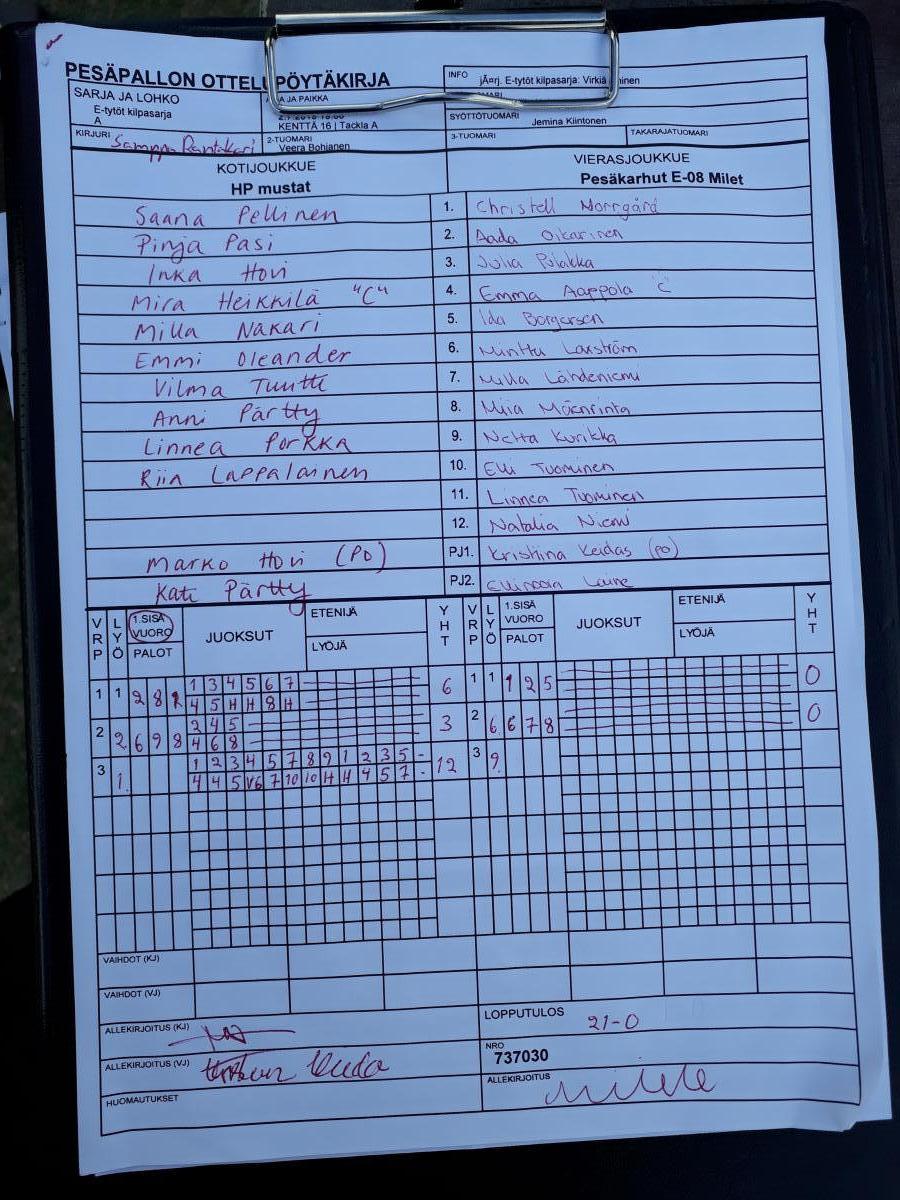 PESÄPALLON OTTELUPÖYTÄKIRJA
INFO jÃ¤rj. E-tytöt kilpasarja: Virkiä
SARJA JA LOHKO
E-tytöt kilpasarja
A
JA PAIKKA
KENTTÄ 16 | Tackla A
SYÖTTÖTUOMARI Jemina Kiintonen
KIRJURI Samppa Rantakari
2-TUOMARI
Veera Bohjanen
3-TUOMARI
TAKARAJATUOMARI
KOTIJOUKKUE
HP mustat
VIERASJOUKKUE
Pesäkarhut E-08 Milet
Saana Pellinen 1. Christell Norrgård
Pinja Pasi 2. Aada Oikarinen
Inka Hovi 3. Julia Pulakka
Mira Heikkilä "C" 4. Emma Aappola "C"
Milla Nakari 5. Ida Borgersen
Emmi Oleander 6. Minttu Laxström
Vilma Tuutti 7. Milla Lähdeniemi
Anni Pärtty 8. Miia Mäenrinta
Linnea Porkka 9. Netta Kurikka
Riin Lappalainen 10. Elli Tuominen
11. Linnea Tuominen
12. Natalia Niemi
Marko Hovi (PO) PJ1. Kristiina Keidas (po)
Kati Pärtty PJ2. Ellinoora Laine
VRP LYÖ 1.SISÄ VUORO PALOT JUOKSUT ETENIJÄ LYÖJÄ YHT VRP LYÖ 1.SISÄ VUORO PALOT JUOKSUT ETENIJÄ LYÖJÄ YHT
1 1 2 8 1 3 4 5 6 7 6 1 1 1 2 5 0
4 5 H H 8 H
2 2 6 9 8 2 4 5 3 2 6 6 7 8 0
4 6 8
3 1. 1 2 3 4 5 7 8 9 1 2 3 5 - 12 3 9.
4 4 5 V6 7 10 10 H H 4 5 7 -
VAIHDOT (KJ)
VAIHDOT (VJ)
ALLEKIRJOITUS (KJ)
LOPPUTULOS 21-0
ALLEKIRJOITUS (VJ)
NRO
737030
HUOMAUTUKSET
ALLEKIRJOITUS